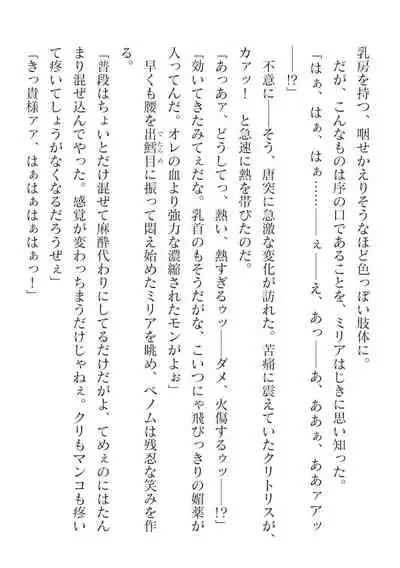 乳房を持つ、咽せかえりそうなほど色っぽい肢体に。
だが、こんなものは序の口であることを、ミリアはじきに思い知った。
「はぁ、はぁ、はぁ………ぇ――え、あっ――あ、ああぁ、ああァアッ
――!?」
不意に――そう、唐突に急激な変化が訪れた。苦痛に震えていたクリトリスが、
カァッ！　と急速に熱を帯びたのだ。
「あっあァ、どうしてっ、熱い、熱すぎるゥッ――ダメ、火傷するゥッ――!?」
「効いてきたみてぇだな。乳首のもそうだがな、こいつにゃ飛びっきりの媚薬が
入ってんだ。オレの血より強力な濃縮されたモンがよぉ」
早くも腰を出鱈目に振って悶え始めたミリアを眺め、ベノムは残忍な笑みを作
る。
「普段はちょいとだけ混ぜて麻酔代わりにしてるだけだがよ、てめぇのにはたん
まり混ぜ込んでやった。感覚が変わっちまうだけじゃねぇ。クリもマンコも疼い
て疼いてしょうがなくなるだろうぜぇ」
「きっ貴様アァ、はぁはぁはぁはぁっ！」